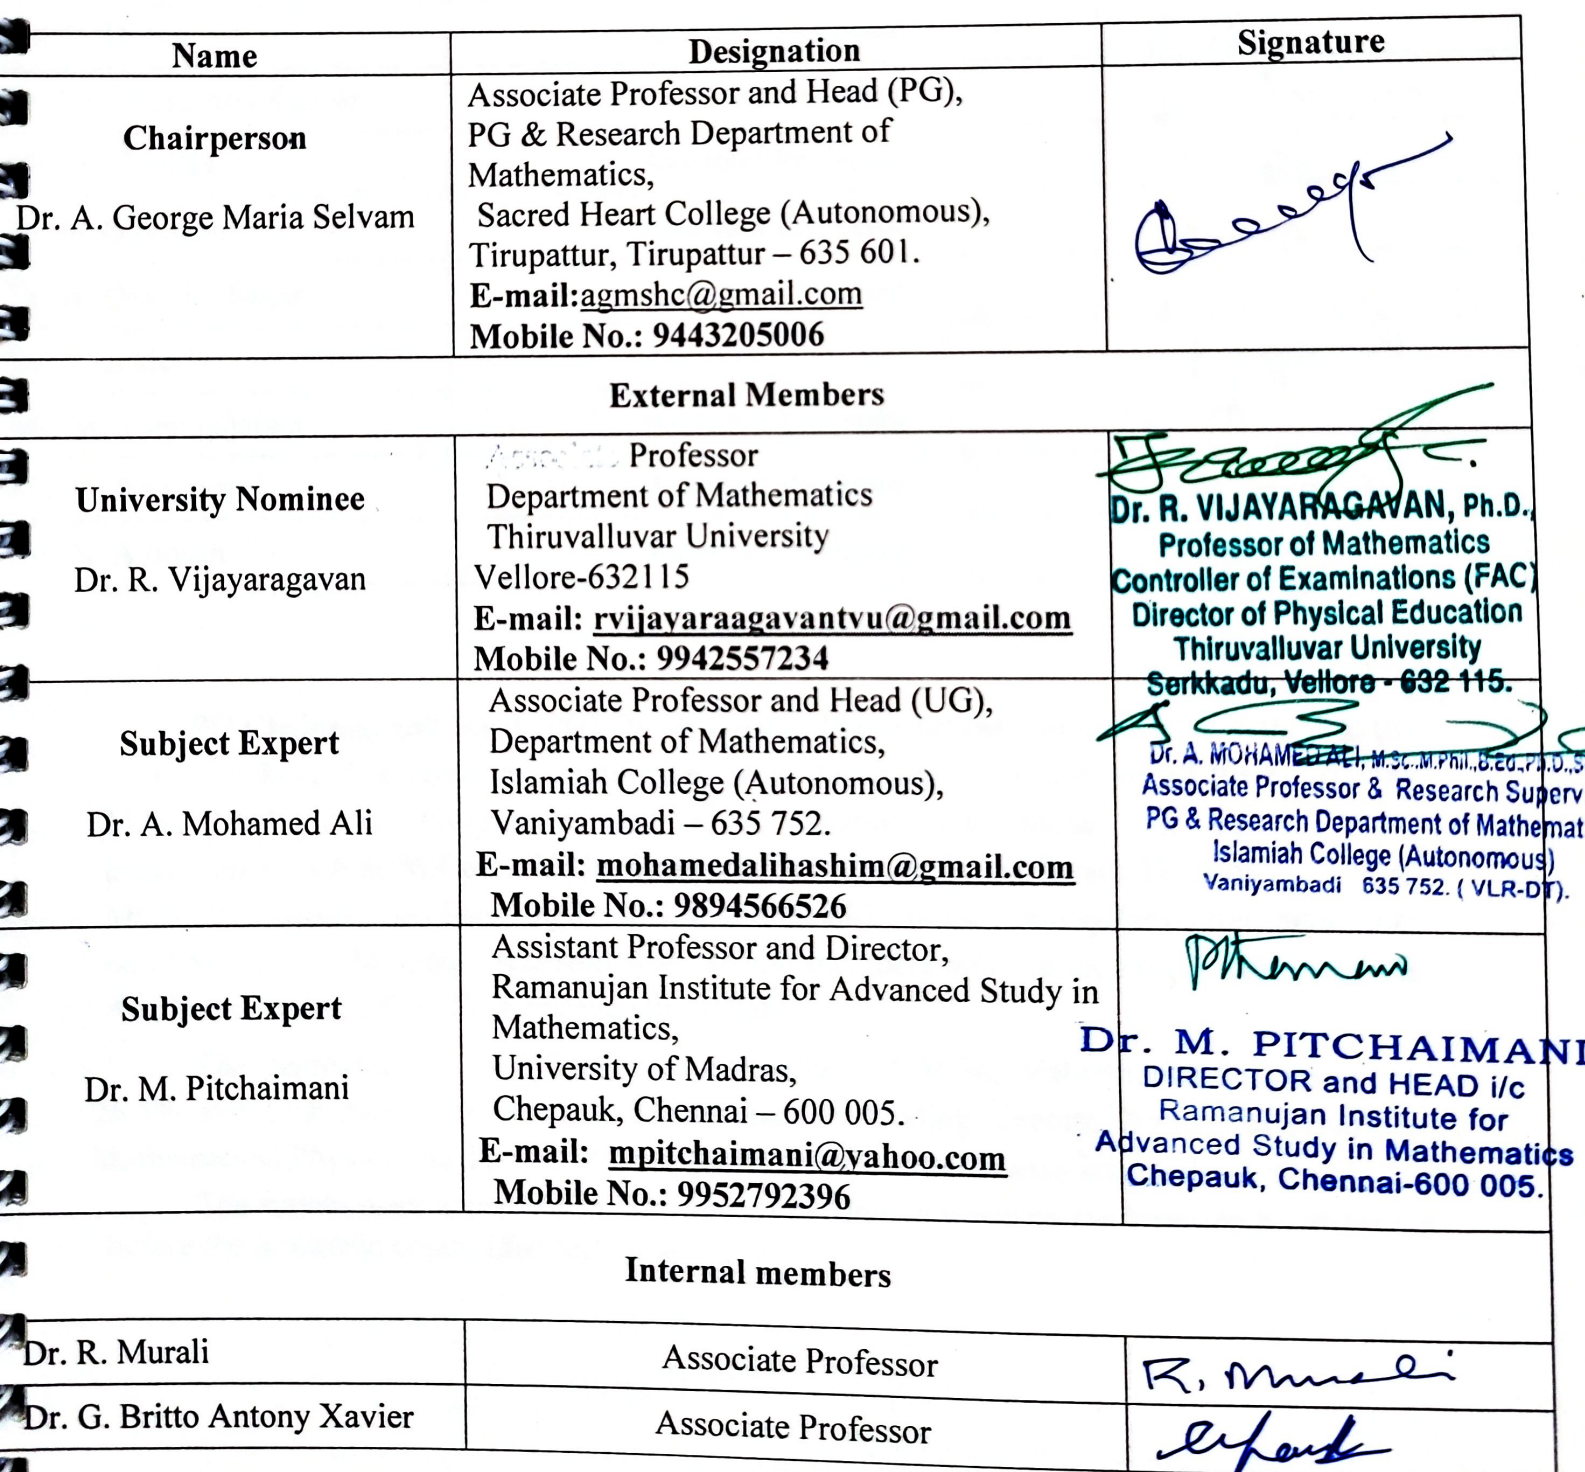 Name Designation Signature
Chairperson
Dr. A. George Maria Selvam
Associate Professor and Head (PG),
PG & Research Department of
Mathematics,
Sacred Heart College (Autonomous),
Tirupattur, Tirupattur – 635 601.
E-mail:agmshc@gmail.com
Mobile No.: 9443205006
External Members
University Nominee
Dr. R. Vijayaragavan
Associate Professor
Department of Mathematics
Thiruvalluvar University
Vellore-632115
E-mail: rvijayaraagavantvu@gmail.com
Mobile No.: 9942557234
Dr. R. VIJAYARAGAVAN, Ph.D.,
Professor of Mathematics
Controller of Examinations (FAC)
Director of Physical Education
Thiruvalluvar University
Serkkadu, Vellore - 632 115.
Subject Expert
Dr. A. Mohamed Ali
Associate Professor and Head (UG),
Department of Mathematics,
Islamiah College (Autonomous),
Vaniyambadi – 635 752.
E-mail: mohamedalihashim@gmail.com
Mobile No.: 9894566526
Dr. A. MOHAMED ALI, M.Sc.,M.Phil.,B.Ed.,Ph.D.,S
Associate Professor & Research Superv
PG & Research Department of Mathemat
Islamiah College (Autonomous)
Vaniyambadi 635 752. ( VLR-DT).
Subject Expert
Dr. M. Pitchaimani
Assistant Professor and Director,
Ramanujan Institute for Advanced Study in
Mathematics,
University of Madras,
Chepauk, Chennai – 600 005.
E-mail: mpitchaimani@yahoo.com
Mobile No.: 9952792396
Dr. M. PITCHAIMANI
DIRECTOR and HEAD i/c
Ramanujan Institute for
Advanced Study in Mathematics
Chepauk, Chennai-600 005.
Internal members
Dr. R. Murali Associate Professor R. Murali
Dr. G. Britto Antony Xavier Associate Professor